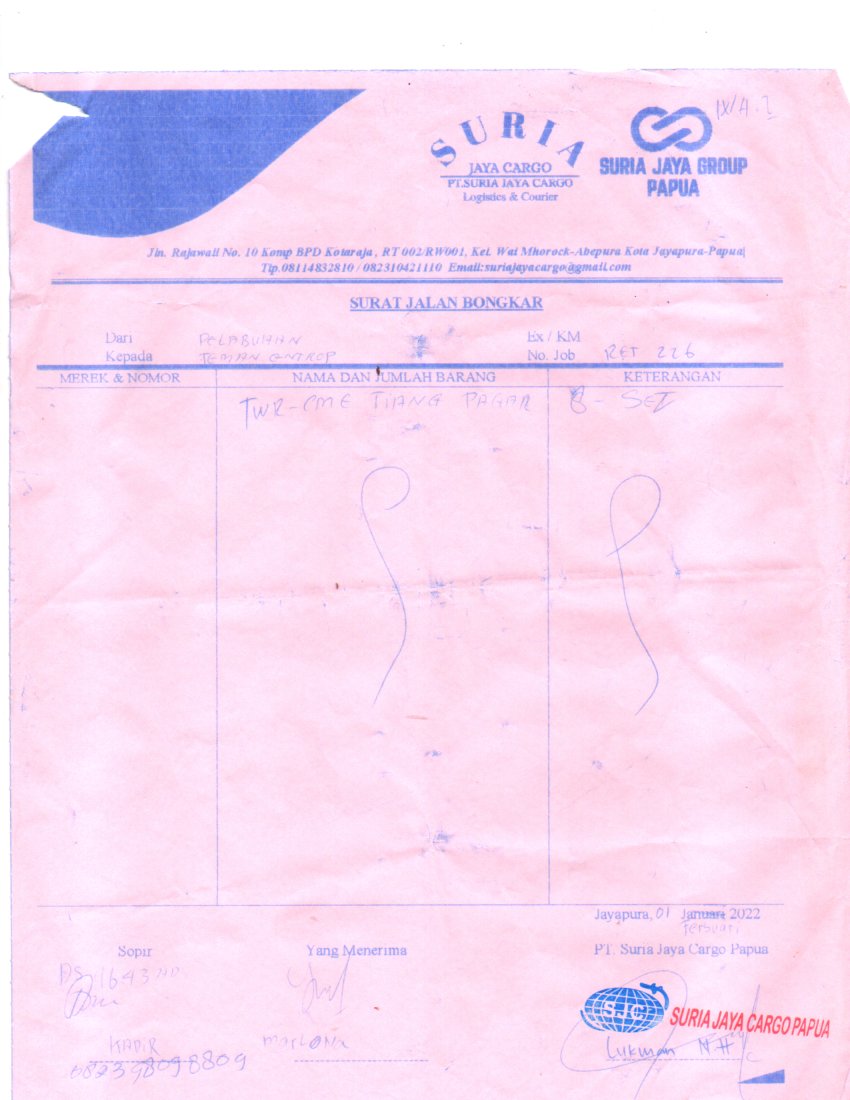 IX/A.2
SURIA
JAYA CARGO
PT.SURIA JAYA CARGO
Logistics & Courier
SURIA JAYA GROUP
PAPUA
Jln. Rajawali No. 10 Komp BPD Kotaraja , RT 002/RW001, Kel. Wai Mhorock-Abepura Kota Jayapura-Papua
Tlp.08114832810 / 082310421110 Email:suriajayacargo@gmail.com
SURAT JALAN BONGKAR
Dari PELABUHAN Ex / KM
Kepada TEMAN ENTROP No. Job RET 226
MEREK & NOMOR NAMA DAN JUMLAH BARANG KETERANGAN
TWR-CME TIANG PAGAR 8 - SET
Jayapura, 01 Januari 2022
Februari
Sopir Yang Menerima PT. Suria Jaya Cargo Papua
DS 1643 ND
SJC SURIA JAYA CARGO PAPUA
KADIR Lukman N.H
082398098809